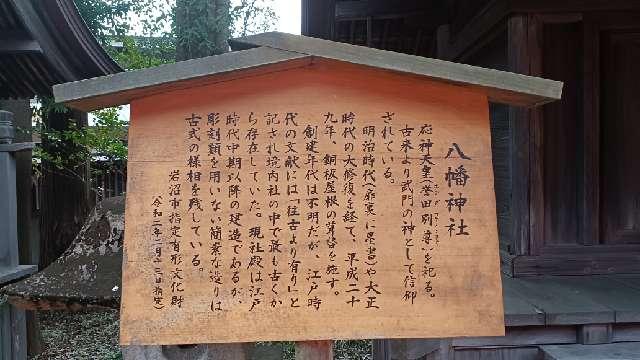 八幡神社
応神天皇(誉田別尊)を祀る。
古来より武門の神として信仰
されている。
明治時代(扉裏に墨書)や大正
時代の大修復を経て、平成二十
九年、銅板屋根の葺替を施す。
創建年代は不明だが、江戸時
代の文献には「往古より有り」と
記され境内社の中で最も古くか
ら存在していた。現社殿は江戸
時代中期以降の建造であるが、
彫刻類を用いない簡素な造りは
古式の様相を残している。
岩沼市指定有形文化財
(令和二年二月二三日指定)